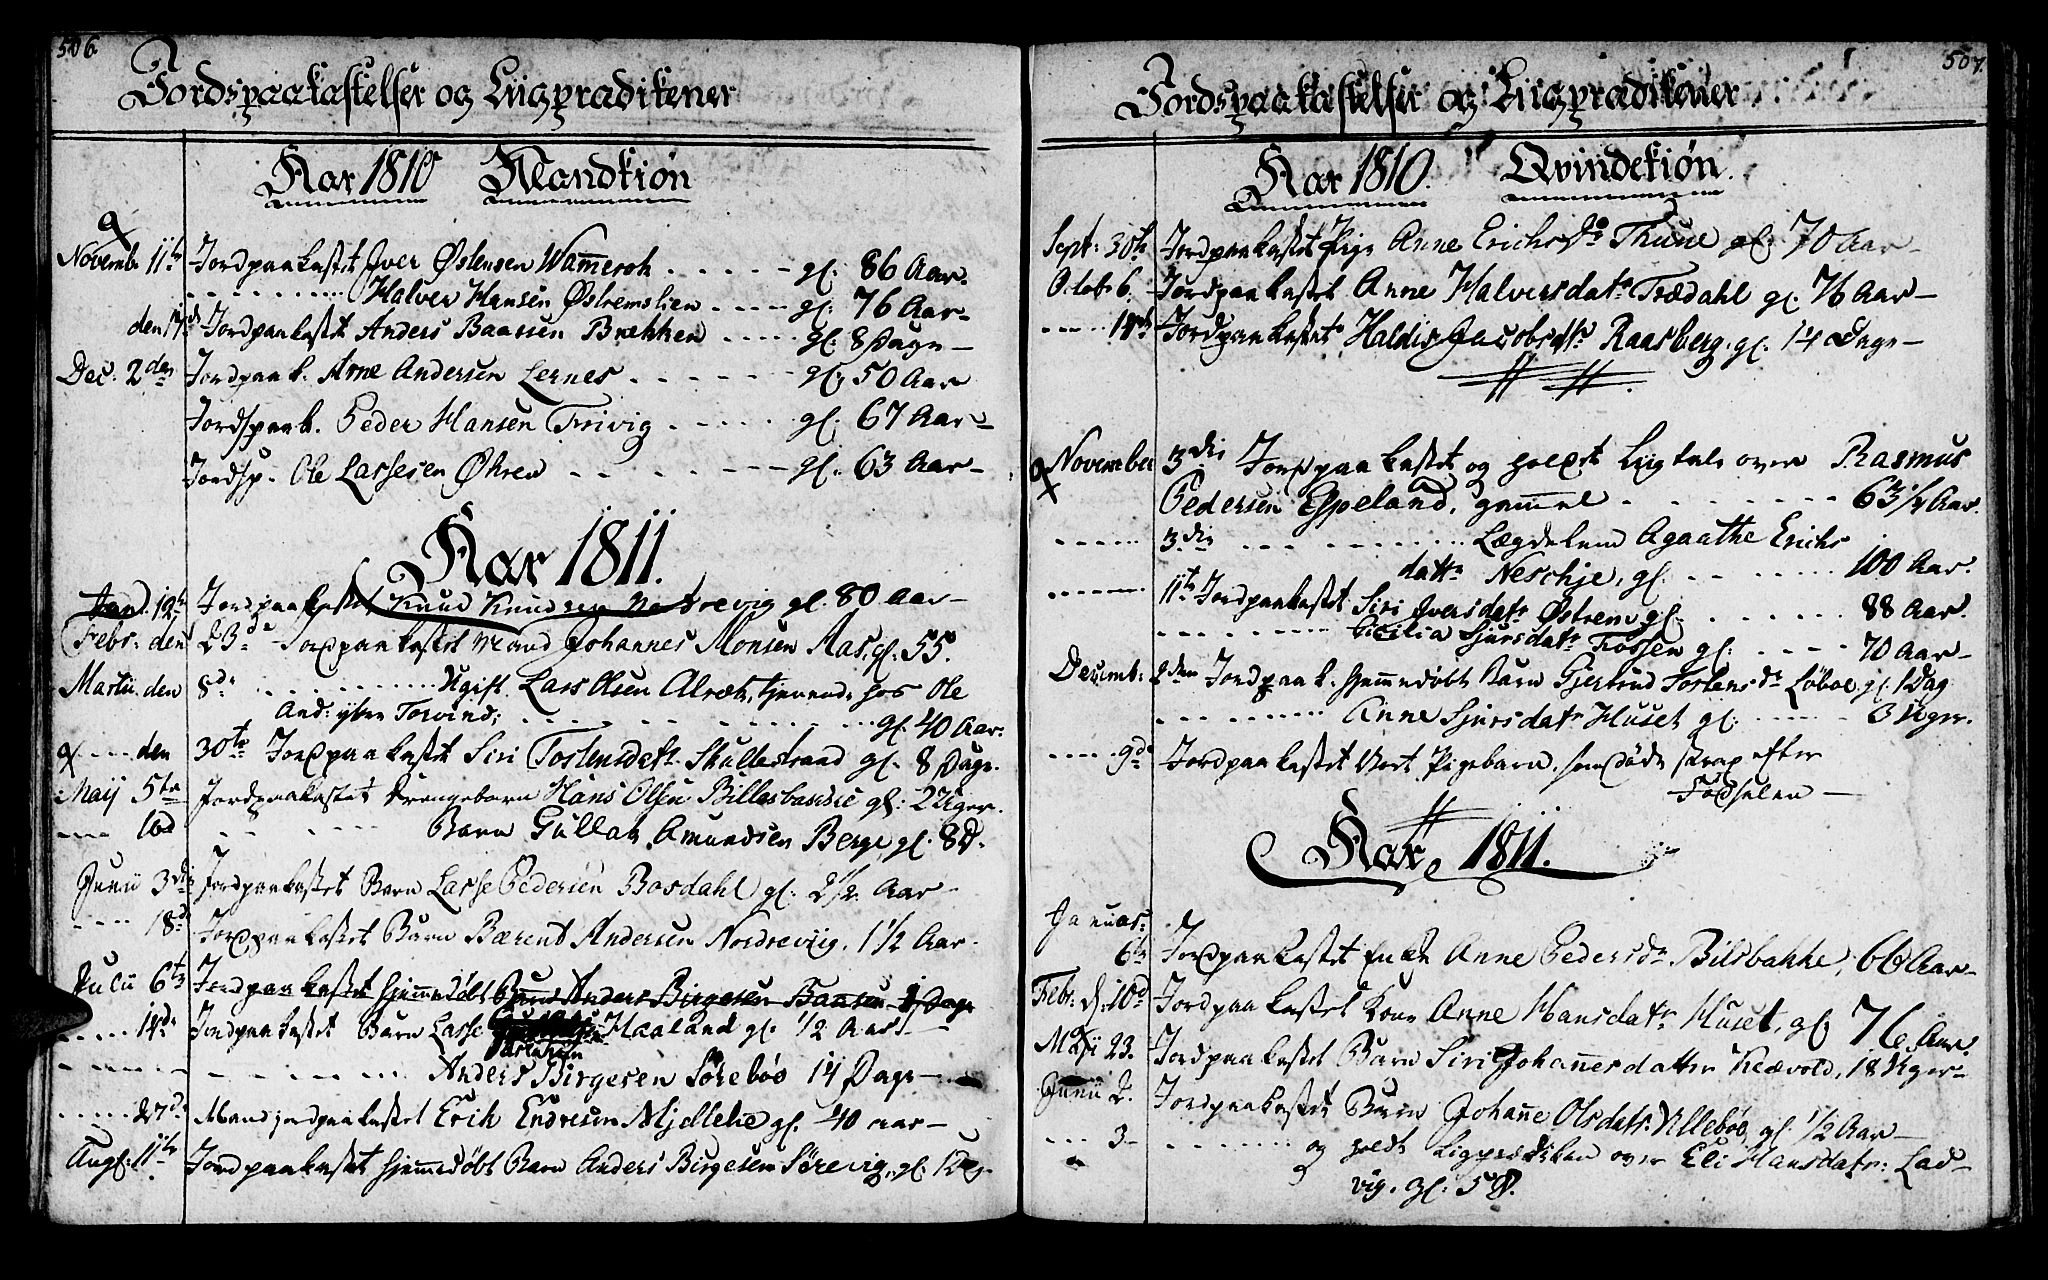 506.
Jordspaakastelser og Liigprædikener
Aar 1810 Mandkiøn
Novemb: 11te Jordpaakastet Iver Østensen Wammeroh gl: 86 Aar.
Halver Hansen Østremslien gl: 76 Aar
den Jordpaakastet Anders Baarsen Brækken gl: 8 Dage
Dec: 2den Jordpaak. Arne Andersen Lernes gl: 50 Aar
Jordspaak. Peder Hansen Trivig gl: 67 Aar
Jordsp. Ole Lassesen Øhren gl: 63 Aar
Aar 1811.
Jan: 12te Jordpaakastet Knud Knudsen gl. 80 Aar
Febr: den 23de Jordpaakastet Mand Johannes Monsen Aas, gl. 55.
Martii den 8de Ugift Lars Olsen Alræk, tjenende hos Ole
And: Torvind; gl. 40 Aar.
den 30te Jordpaakastet Siri Tostensdatr Skullestrand gl. 8 Dage.
Maij 5te Jordpaakastet Drengebarn Hans Olsen gl: 2 Uger.
16d Barn Gullak Amundsen Berge gl. 8 D.
Junii 3die Jordpaakastet Barn Lasse Pedersen Bosdahl gl. 2 1/2 Aar
18d Jordpaakastet Barn Bærent Andersen Nordreviig, 1 1/2 Aar.
Julii 6te Jordpaakastet hjemmedøbt Barn Anders Birgesen 1 Dage
14de Jordpaakastet Barn Lasse Haaland gl. 1/2 Aar
Anders Birgesen Sørebøe 14 Dage
27de Mand jordpaakastet Erik Endresen Mjellehe gl. 40 aar
Aug: 11te Jordpaakastet hjemmedøbt Barn Anders Birgesen Sørevig, gl. 1 Dag.
507.
Jordspaakastelser og Liigprædikener
Aar 1810. Qvindekiøn.
Sept: 30te Jordpaakastet Pige Anne Erichsdr Thune gl: 70 Aar
Octob: 6. Jordpaakastet Anne Halversdatr Trædahl gl. 76 Aar
14de Jordpaakastet Haldis Jacobsdtr Raasberg. gl. 14 Dage
November 3die Jordpaakastet og holdt Liigtale over Rasmus
Pedersen Espeland, gammel 63 1/4 Aar.
3die Lægdelem Agaathe Erichs
datter Neschje, gl. 100 Aar.
11te Jordpaakastet Siri Iversdatr Østrem gl. 88 Aar.
Cicilia Sjursdatr Fossen gl: 70 Aar
Decemb: 2den Jordpaak. hjemmedøbt Barn Gjertrud Tostensdr Løboe gl. 1 Dag
Anne Sjursdatr Huset gl. 3 Uger.
9de Jordpaakastet Pigebarn, som døde strax efter
Fødselen
Aar 1811.
Januar:
6te Jordpaakastet Enke Anne Pedersdr Bilsbakke, 66 Aar
Febr: d. 10d Jordpaakastet Kone Anne Hansdatr Huset, gl. 76 Aar.
Maji 23. Jordpaakastet Barn Siri Johannesdatter Kvævold, 18 Uger
Junii 2. Jordpaakastet Barn Johanne Olsdatr: Ullebøe gl. 1/2 Aar
3 og holdt Ligprædiken over Eli Hansdatr: Lad-
vig, gl: 58.